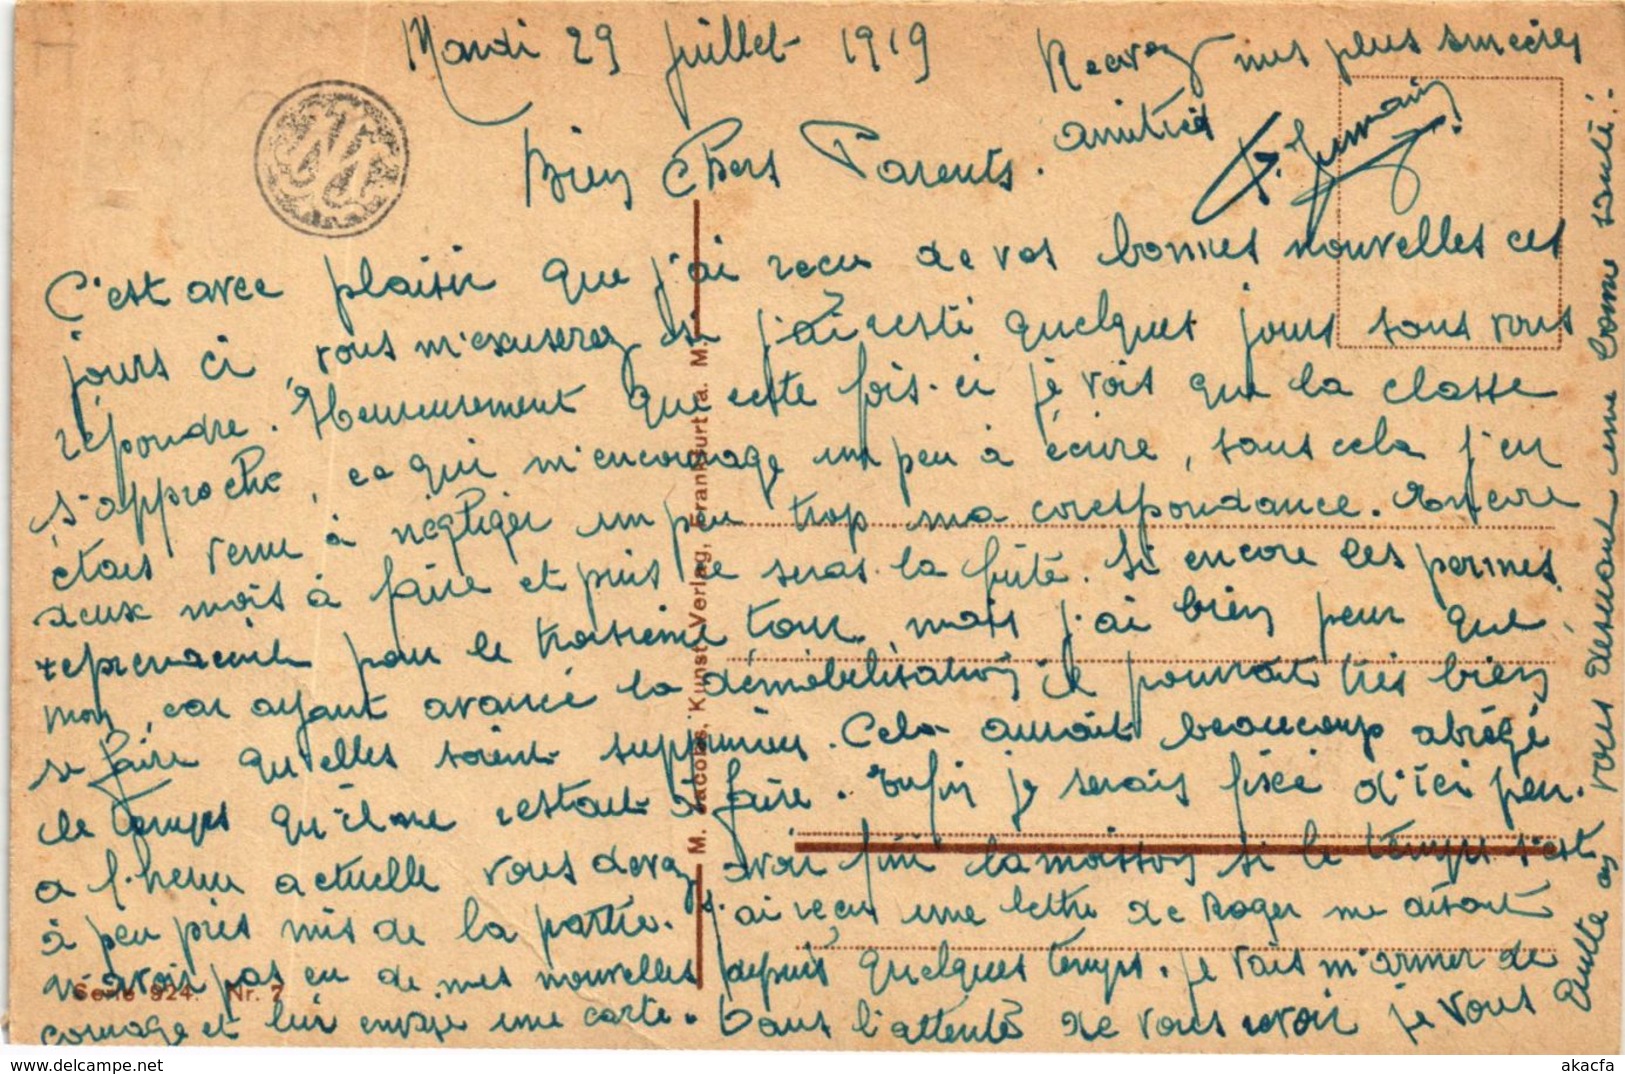 Mardi 29 Juillet 1919
Bien Chers Parents.
C'est avec plaisir que j'ai recu de vos bonnes nouvelles ces
jours ci, vous m'excuserez si j'ai resté quelques jours sans vous
répondre. Heureusement que cette fois-ci je vois que la classe
s'approche, ce qui m'encourage un peu à écrire, sans cela j'en
étais venu à négliger un peu trop ma correspondance. Encore
deux mois à faire et puis ce seras la fuite. Si encore les permes
reprenaient pour le troisième tour, mais j'ai bien peur que
non, car ayant avancé la démobilisation il pourrait très bien
se faire qu'elles soient supprimées. Cela aurait beaucoup abrégé
le temps qu'il me restait à faire. Enfin je serais fixé d'ici peu.
a l'heure actuelle vous devez avoir fini la moisson si le temps s'est
à peu près mis de la partie. J'ai reçu une lettre de Roger me disant
n'avoir pas eu de mes nouvelles depuis quelques temps. Je vais m'armer de
courage et lui envoyer une carte. Dans l'attente de vous revoir je vous
quitte en vous désirant une bonne santé.
Recevez mes plus sincères
amitiés
M. Jacobs, Kunst-Verlag, Frankfurt a. M.
Serie 924. Nr. 7
akacfa